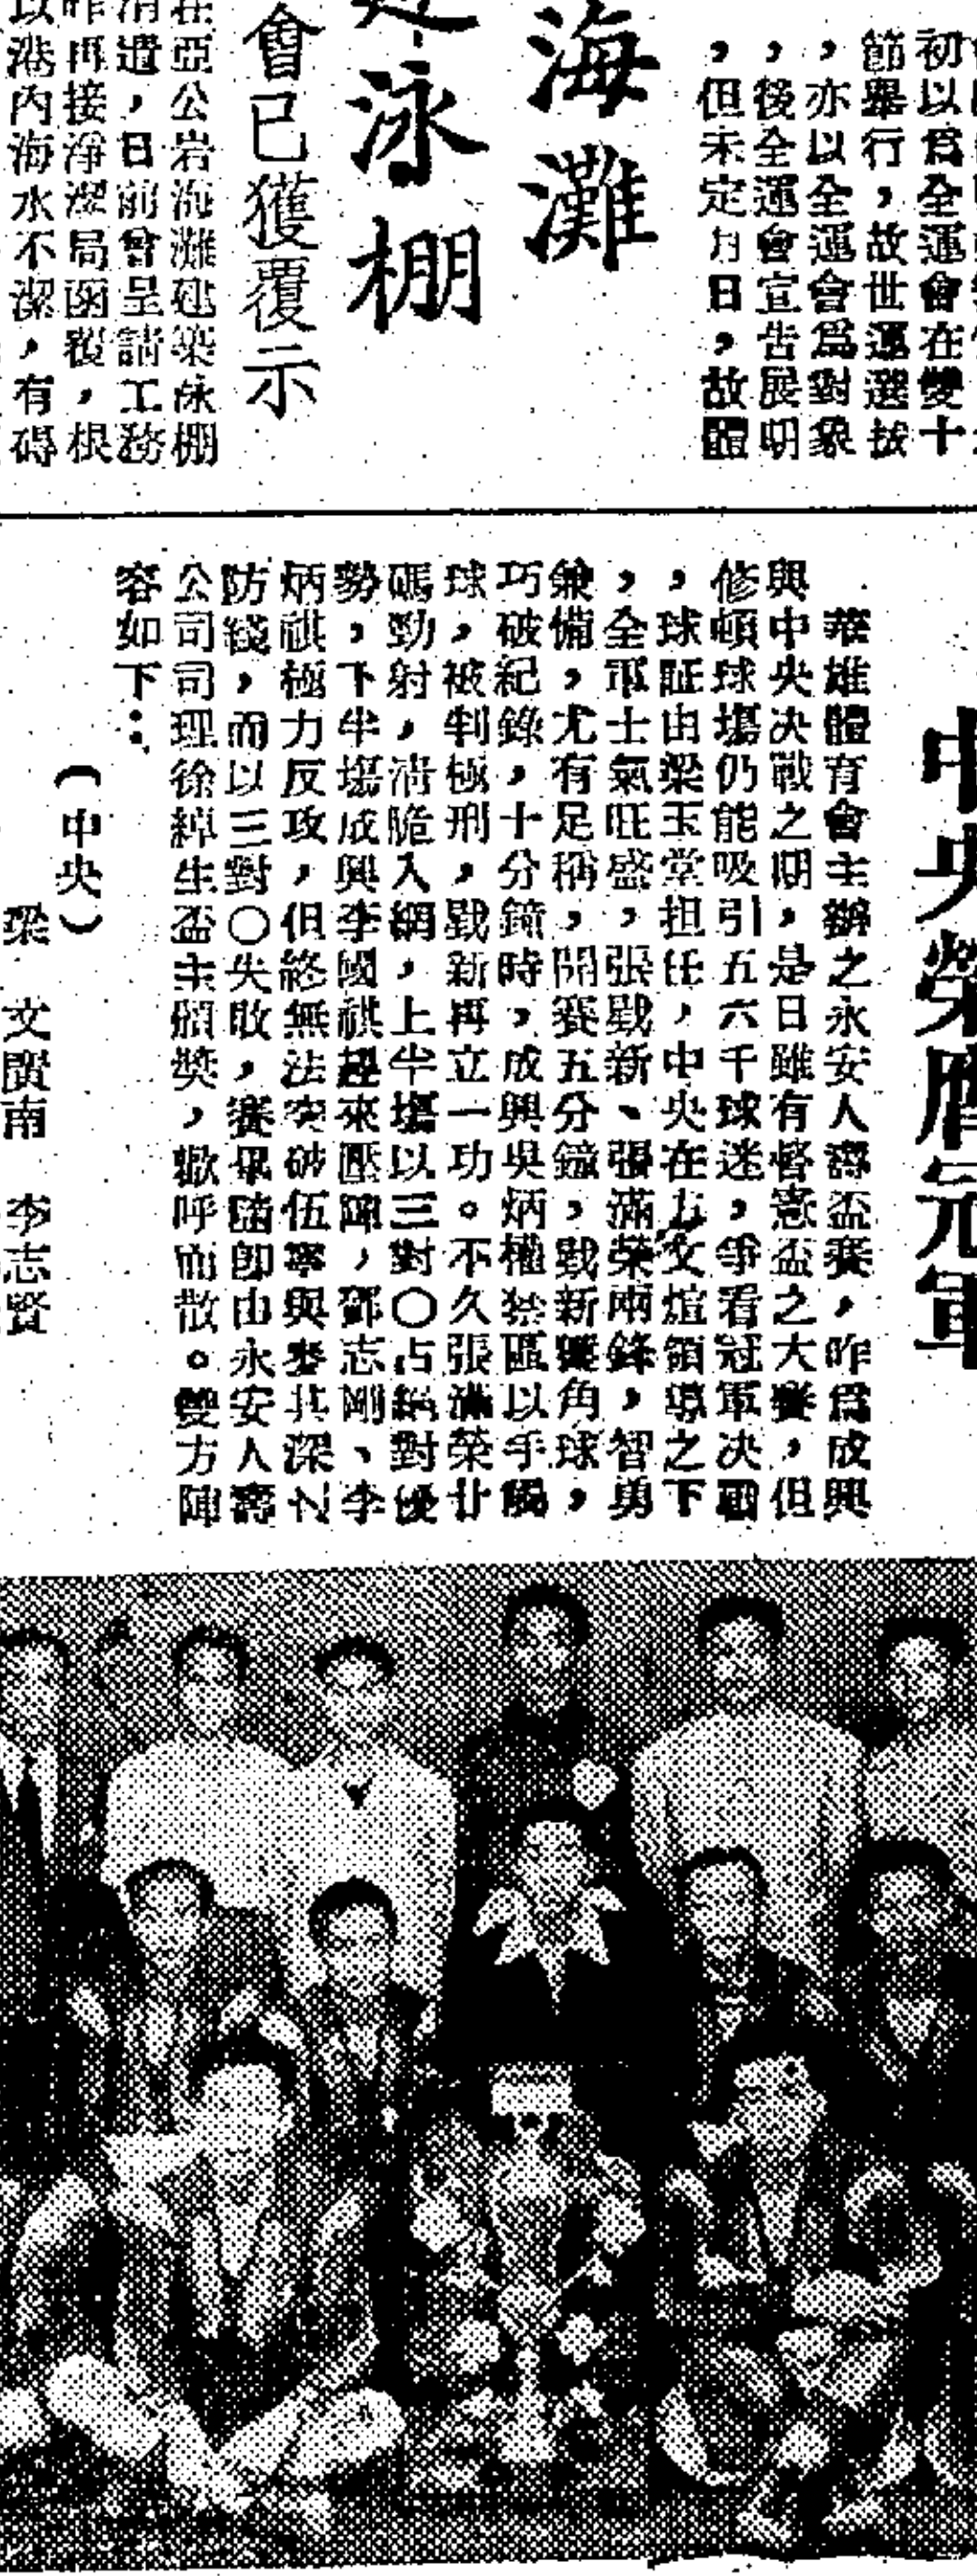 初以爲全運會在雙十
節舉行，故世運選拔
，亦以全運會爲對象
，後全運會宣告展期
，但未定月日，故體
海灘
泳棚
會已獲覆示
在亞公岩海灘建築泳棚
消遣，日前曾呈請工務
昨再接淨潔局函覆，根
以港內海水不潔，有碍
中央榮膺冠軍
華雄體育會主辦之永安人壽盃賽，昨爲成興
與中央决戰之期，是日雖有督憲盃之大賽，但
修頓球塲仍能吸引五六千球迷，爭看冠軍决戰
，球証由梁玉堂担任，中央在方文煊領導之下
，全軍士氣旺盛，張戥新、張滿榮兩鋒，智勇
兼備，尤有足稱，開賽五分鐘，戥新踢角球，
巧破紀錄，十分鐘時，成興吳炳權禁區以手觸
球，被判極刑，戥新再立一功。不久張滿榮廿
碼勁射，淸脆入網，上半塲以三對〇占絕對優
勢，下半塲成興李國祺趕來壓陣，鄧志剛、李
炳祺極力反攻，但終無法突破伍寧與麥其深之
防綫，而以三對〇失敗，賽畢隨即由永安人壽
公司司理徐綽生盃主頒獎，歡呼而散。雙方陣
容如下：
（中央）
梁　文廣南　李志賢